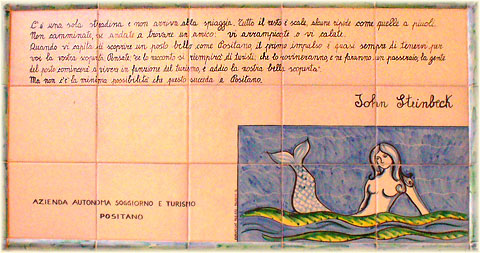 C'è una sola stradina e non arriva alla spiaggia. Tutto il resto è scale, alcune ripide come quelle a pioli.
Non camminate, se andate a trovare un amico: vi arrampicate o vi calate.
Quando vi capita di scoprire un posto bello come Positano il primo impulso è quasi sempre di tenervi per
voi la vostra scoperta. Pensate: "se lo racconto si riempirà di turisti, che lo rovineranno, e ne faranno un passeraio, la gente
del posto comincerà a vivere in funzione del turismo, e addio la vostra bella scoperta".
Ma non c'è la minima possibilità che questo succeda a Positano.
John Steinbeck
AZIENDA AUTONOMA SOGGIORNO E TURISMO
POSITANO